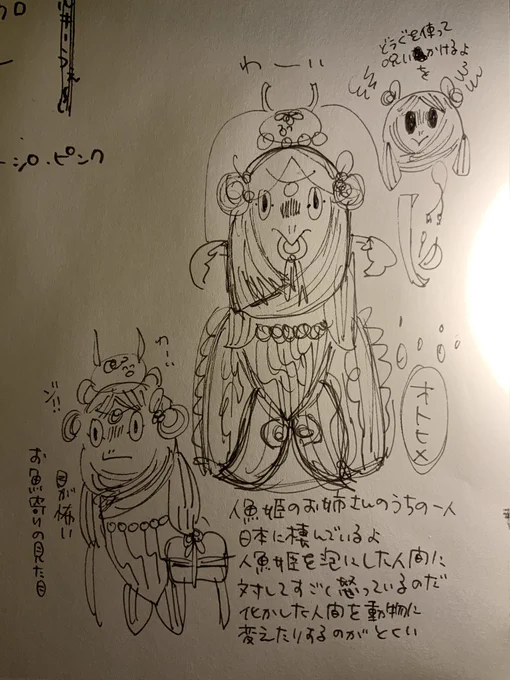 どうぐを使って
呪いをかけるよ
わーい
シロ・ピンク
オトヒメ
わーい
目が怖い
お魚寄りの見た目
人魚姫のお姉さんのうちの一人
日本に棲んでいるよ
人魚姫を泡にした人間に
対してすごく怒っているのだ
化かした人間を動物に
変えたりするのがとくい